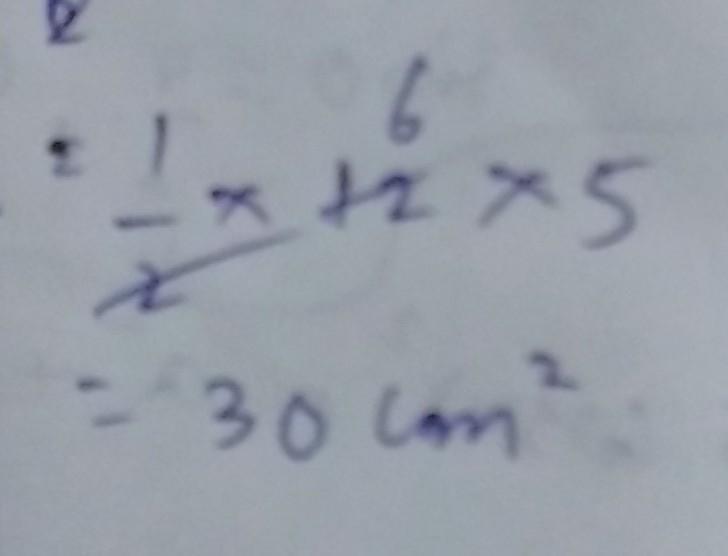 2
= 1/2 × 12 × 5
6
= 30 cm²